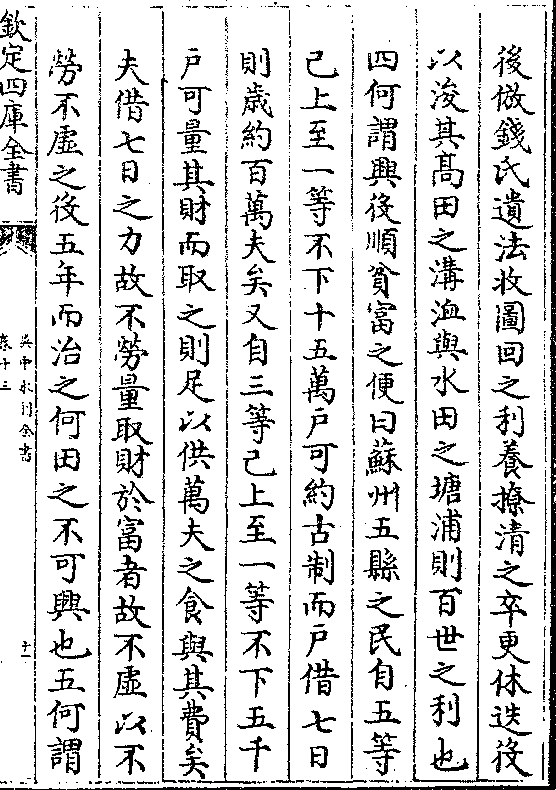 後倣錢氏遺法收圖回之利養撩清之卒更休迭役
以浚其髙田之溝洫與水田之塘浦則百世之利也
四何謂興役順貧富之便曰蘇州五縣之民自五等
己上至一等不下十五萬户可約古制而户借七日
則歳約百萬夫矣又自三等己上至一等不下五千
户可量其財而取之則足以供萬夫之食與其費矣
夫借七日之力故不勞量取財於富者故不虛以不
勞不虛之役五年而治之何田之不可興也五何謂
欽定四庫全書
吳中水利全書
卷十三
十一